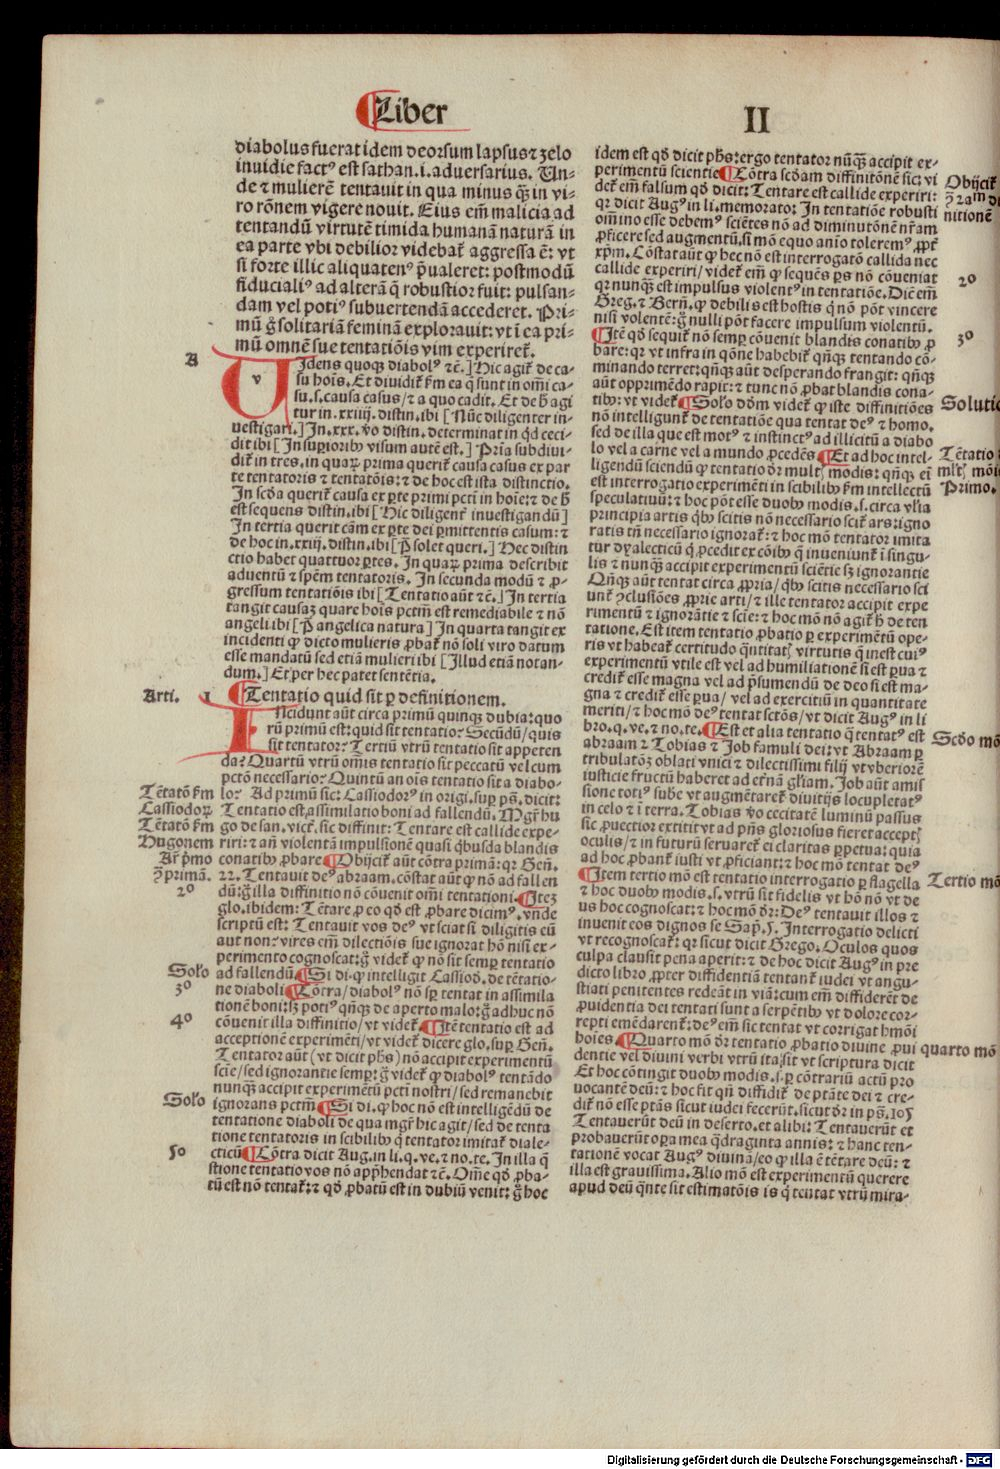 Liber
II
diabolus fuerat idem deorsum lapsus ⁊ zelo
inuidie factꝰ est sathan .i. aduersarius. Un-
de ⁊ mulierē tentauit in qua minus q̄ꝫ in vi-
ro rōnem vigere nouit. Eius em̄ malicia ad
tentandū virtutē timida humanā naturā in
ea parte vbi debilior videbat᷑ aggressa ē: vt
si forte illic aliquatenꝰ p̄ualeret: postmodū
fiduciliꝰ ad alterā q̄ robustior fuit: pulsan-
dam vel potiꝰ subuertendā accederet. Pri-
mū g̊ solitariā feminā explorauit: vt i ea pri-
mū omnē sue tentatiōis vim experiret᷑.
A
v
UIdens quoqꝫ diabolꝰ ⁊c̄.] Hic agit᷑ de ca-
su hoīs. Et diuidit᷑ ẜm ea q̄ sunt in om̄i ca-
su .s. causa casus/ ⁊ a quo cadit. Et de h̄ agi
tur in .xxiiij. distin. ibi [Nūc diligenter in-
uestigari.] In .xxx. v̊o distin. determinat in qd̄ ceci-
dit ibi [In supioribꝰ visum autē est.] Pria subdiui-
dit᷑ in tres. in quaꝝ prima querit᷑ causa casus ex par
te tentatoris ⁊ tentatōis: ⁊ de hoc est ista distinctio.
In scd̄a querit᷑ causa ex ꝑte primi pcti in hoīe: ⁊ de h̄
est sequens distin. ibi [Hic diligent᷑ inuestigandū]
In tertia querit cām ex ꝑte dei ꝑmittentis casum: ⁊
de hoc in .xxiij. distin. ibi [P̄ solet queri.] Hec distin
ctio habet quattuor ꝑtes. In quaꝝ prima describit
aduentū ⁊ spēm tentatoris. In secunda modū ⁊ ꝓ-
gressum tentatiōis ibi [Tentatio aūt ⁊c̄.] In tertia
tangit causaꝫ quare hoīs pctm̄ est remediabile ⁊ nō
angeli ibi [P̄ angelica natura] In quarta tangit ex
incidenti ꝙ dicto mulieris ꝓbat᷑ nō soli viro datum
esse mandatū sed etiā mulieri ibi [Illud etiā notan-
dum.] Et per hec patet sentētia.
Arti. 1
Tentatio quid sit ꝑ definitionem.
INcidunt aūt circa primū quinqꝫ dubia: quo
rū primū est: quid sit tentatio? Secūdū/ quis
sit tentator? Tertiū vtrū tentatio sit appeten
da? Quartū vtrū om̄is tentatio sit peccatū vel cum
pctō necessario? Quintū an oīs tentatio sit a diabo-
lo? Ad primū sic: Cassiodorꝰ in origi. sup ps̄. dicit:
Tentatio est, assimilatio boni ad fallendū. Mgr̄ hu
go de san. vict᷑. sic diffinit: Tentare est callide expe-
riri: ⁊ añ violentā impulsionē quasi q̄busda blandis
conatibꝰ ꝓbare. Obijcit᷑ aūt cōtra primā: qꝛ Geñ.
22. Tentauit deꝰ abraam. cōstat aūt ꝙ nō ad fallen
dū: g̊ illa diffinitio nō cōuenit om̄i tentationi. Iteꝫ
glo. ibidem: Tētare ꝓ eo qd̄ est ꝓbare dicim̄ꝰ. vnde
scriptū est: Tentauit vos deꝰ vt sciat si diligitis eū
aut non: vires em̄ dilectiōis sue ignorat hō nisi ex-
perimento cognoscat: g̊ videt᷑ ꝙ nō sit semꝑ tentatio
ad fallendū Si di. ꝙ intelligit Cassiod̄. de tētatio-
ne diaboli Cōtra/ diabolꝰ nō sꝑ tentat in assimila
tionē boni: sꝫ potiꝰ qn̄qꝫ de aperto malo: g̊ adhuc nō
cōuenit illa diffinitio/ vt videt᷑. Itē tentatio est ad
acceptionē experimēti/ vt videt᷑ dicere glo. sup Geñ.
Tentator aūt (vt dicit ph̄s) nō accipit experimentū
scīe/ sed ignorantie semꝑ: g̊ videt᷑ ꝙ diabolꝰ tentādo
nunqꝫ accipit experimētū pcti nostri/ sed remanebit
ignorans pctm̄. Si di. ꝙ hoc nō est intelligēdū de
tentatione diaboli de qua mgr̄ hic agit/ sed de tenta
tione tentatoris in scibilibꝰ q̄ tentator imitat᷑ diale-
cticū Cōtra dicit Aug. in li. q. ve. ⁊ no. te. In illa q̄
stione tentatio vos nō app̄hendat ⁊c̄. Om̄e qd̄ ꝓba-
tū est nō tentat᷑: ⁊ qd̄ ꝓbatū est in dubiū venit: g̊ hoc
Tētatō ẜm
Cassiodoꝝ
Tētatō ẜm
Hugonem
Ar̄ pͥmo
ꝯ̄ primā.
2º
Solo
3º
4º
Solo
5º
idem est qd̄ dicit ph̄s: ergo tentator nūqꝫ accipit ex-
perimentū scientie Cōtra scd̄am diffinitōnē sic: vi
det᷑ em̄ falsum qd̄ dicit: Tentare est callide experiri:
qꝛ dicit Augꝰ in li. memorato: In tentatiōe robusti
om̄ino esse debemꝰ sciētes nō ad diminutōnē nr̄am
ꝓficere sed augmentū. si mō equo anīo toleremꝰ ꝓpt᷑
xp̄m. Cōstat aūt ꝙ hec nō est interrogatō callida nec
callide experiri/ videt᷑ em̄ ꝙ sequēs ꝑs nō cōueniat
qꝛ nunqꝫ est impulsus violentꝰ in tentatiōe. Dic em̄
Greg. ⁊ Berñ. ꝙ debilis est hostis q̄ nō pōt vincere
nisi volentē: g̊ nulli pōt facere impulsum violentū.
Itē qd̄ sequit᷑ nō semꝑ cōuenit blandis conatibꝰ ꝓ
bare: qꝛ vt infra in qōne habebit᷑ qn̄qꝫ tentando cō-
minando terret: qn̄qꝫ aūt desperando frangit: qn̄qꝫ
aūt opprimēdo rapit: ⁊ tunc nō ꝓbat blandis cona-
tibꝰ: vt videt᷑ Solo dōm videt᷑ ꝙ iste diffinitiōes
nō intelligunt᷑ de tentatiōe qua tentat deꝰ ⁊ homo.
sed de illa que est motꝰ ⁊ instinctꝰ ad illicitū a diabo
lo vel a carne vel a mundo ꝓcedēs. Et ad hoc intel-
ligendū sciendū ꝙ tentatio dr̄ mult᷑ modis: qn̄qꝫ ei
est interrogatio experimēti in scibilibꝰ ẜm intellectū
speculatiuū: ⁊ hoc pōt esse duobꝰ modis .s. circa vl̄ia
principia artis q̄bꝰ scitis nō necessario scit᷑ ars: igno
ratis tn̄ necessario ignorat᷑: ⁊ hoc mō tentator imita
tur dyalecticū q̄ ꝓcedit ex cōibꝰ q̄ inueniunt᷑ i singu-
lis ⁊ nunqꝫ accipit experimentū sciētie sꝫ ignorantie
Qn̄qꝫ aūt tentat circa ꝓpria/ q̄bꝰ scitis necessario sci
unt᷑ ꝯclusiōes ꝓprie arti/ ⁊ ille tentator accipit expe
rimentū ⁊ ignorātie ⁊ scīe: ⁊ hoc mō nō agit᷑ h̄ de ten
tatione. Est item tentatio ꝓbatio ꝑ experimētū ope-
ris vt habeat᷑ certitudo q̄ntitat᷑ virtutis q̄ inest cuiꝰ
experimentū vtile est vel ad humiliationē si est ꝑua ⁊
credit᷑ esse magna vel ad p̄sumendū de deo si est ma-
gna ⁊ credit᷑ esse ꝑua/ vel ad exercitiū in quantitate
meriti/ ⁊ hoc mō deꝰ tentat sctōs/ vt dicit Augꝰ in li
bro. q. ve. ⁊ no. te. Est et alia tentatio q̄ tentatꝰ est
abraam ⁊ Tobias ⁊ Job famuli dei: vt Abraam ꝑ
tribulatōꝫ oblati vnici ⁊ dilectissimi filij vt vberiorē
iusticie fructū haberet ad et̄nā gl̄iam. Job aūt amis
sione totiꝰ sube vt augmētaret᷑ diuitijs locupletatꝰ
in celo ⁊ i terra. Tobias v̊o cecitatē luminū passus
sic ꝓuectior extitit vt ad pn̄s gloriosus fieret accept᷑
oculis/ ⁊ in futurū seruaret᷑ ei claritas ꝑpetua: quia
ad hoc ꝓbant᷑ iusti vt ꝓficiant: ⁊ hoc mō tentat deꝰ
Item tertio mō est tentatio interrogatio ꝑ flagella
⁊ hoc duobꝰ modis .s. vtrū sit fidelis vt hō nō vt de
us hoc cognoscat: ⁊ hoc mō dr̄: Deꝰ tentauit illos ⁊
inuenit eos dignos se Sap̄. 5. Interrogatio delicti
vt recognoscat᷑: qꝛ sicut dicit Grego. Oculos quos
culpa clausit pena aperit: ⁊ de hoc dicit Augꝰ in pre
dicto libro. ꝓpter diffidentiā tentant᷑ iudei vt angu-
stiati penitentes redeāt in viā: cum em̄ diffiderēt de
ꝓuidentia dei tentati sunt a serpētibꝰ vt dolore cor-
repti emēdarent᷑: deꝰ em̄ sic tentat vt corrigat hmōi
hoīes. Quarto mō dr̄ tentatio ꝓbatio diuine ꝓui
dentie vel diuini verbi vtrū ita sit vt scriptura dicit
Et hoc cōtingit duobꝰ modis .s. ꝑ cōtrariū actū pro
uocantē deū: ⁊ hoc fit qn̄ diffidit᷑ de ptāte dei ⁊ cre-
dit᷑ nō esse ptās sicut iudei fecerūt. sicut dr̄ in ps̄. 105
Tentauerūt deū in deserto. et alibi: Tentauerūt et
probauerūt oꝑa mea q̄draginta annis: ⁊ hanc ten-
tationē vocat Augꝰ diuinā/ eo ꝙ illa ē tētare deū: ⁊
illa est grauissima. Alio mō est experimentū querere
apud deū q̄nte sit estimatōis is q̄ tentat vtrū mira-
Obijcit᷑
ꝯ̄ 2am di
nitionē
2º
3º
Solutio
Tētatio
mlt᷑ mōi
Primo.
Scd̄o mō
Tertio mō
quarto mō
Digitalisierung gefördert durch die Deutsche Forschungsgemeinschaft - DFG